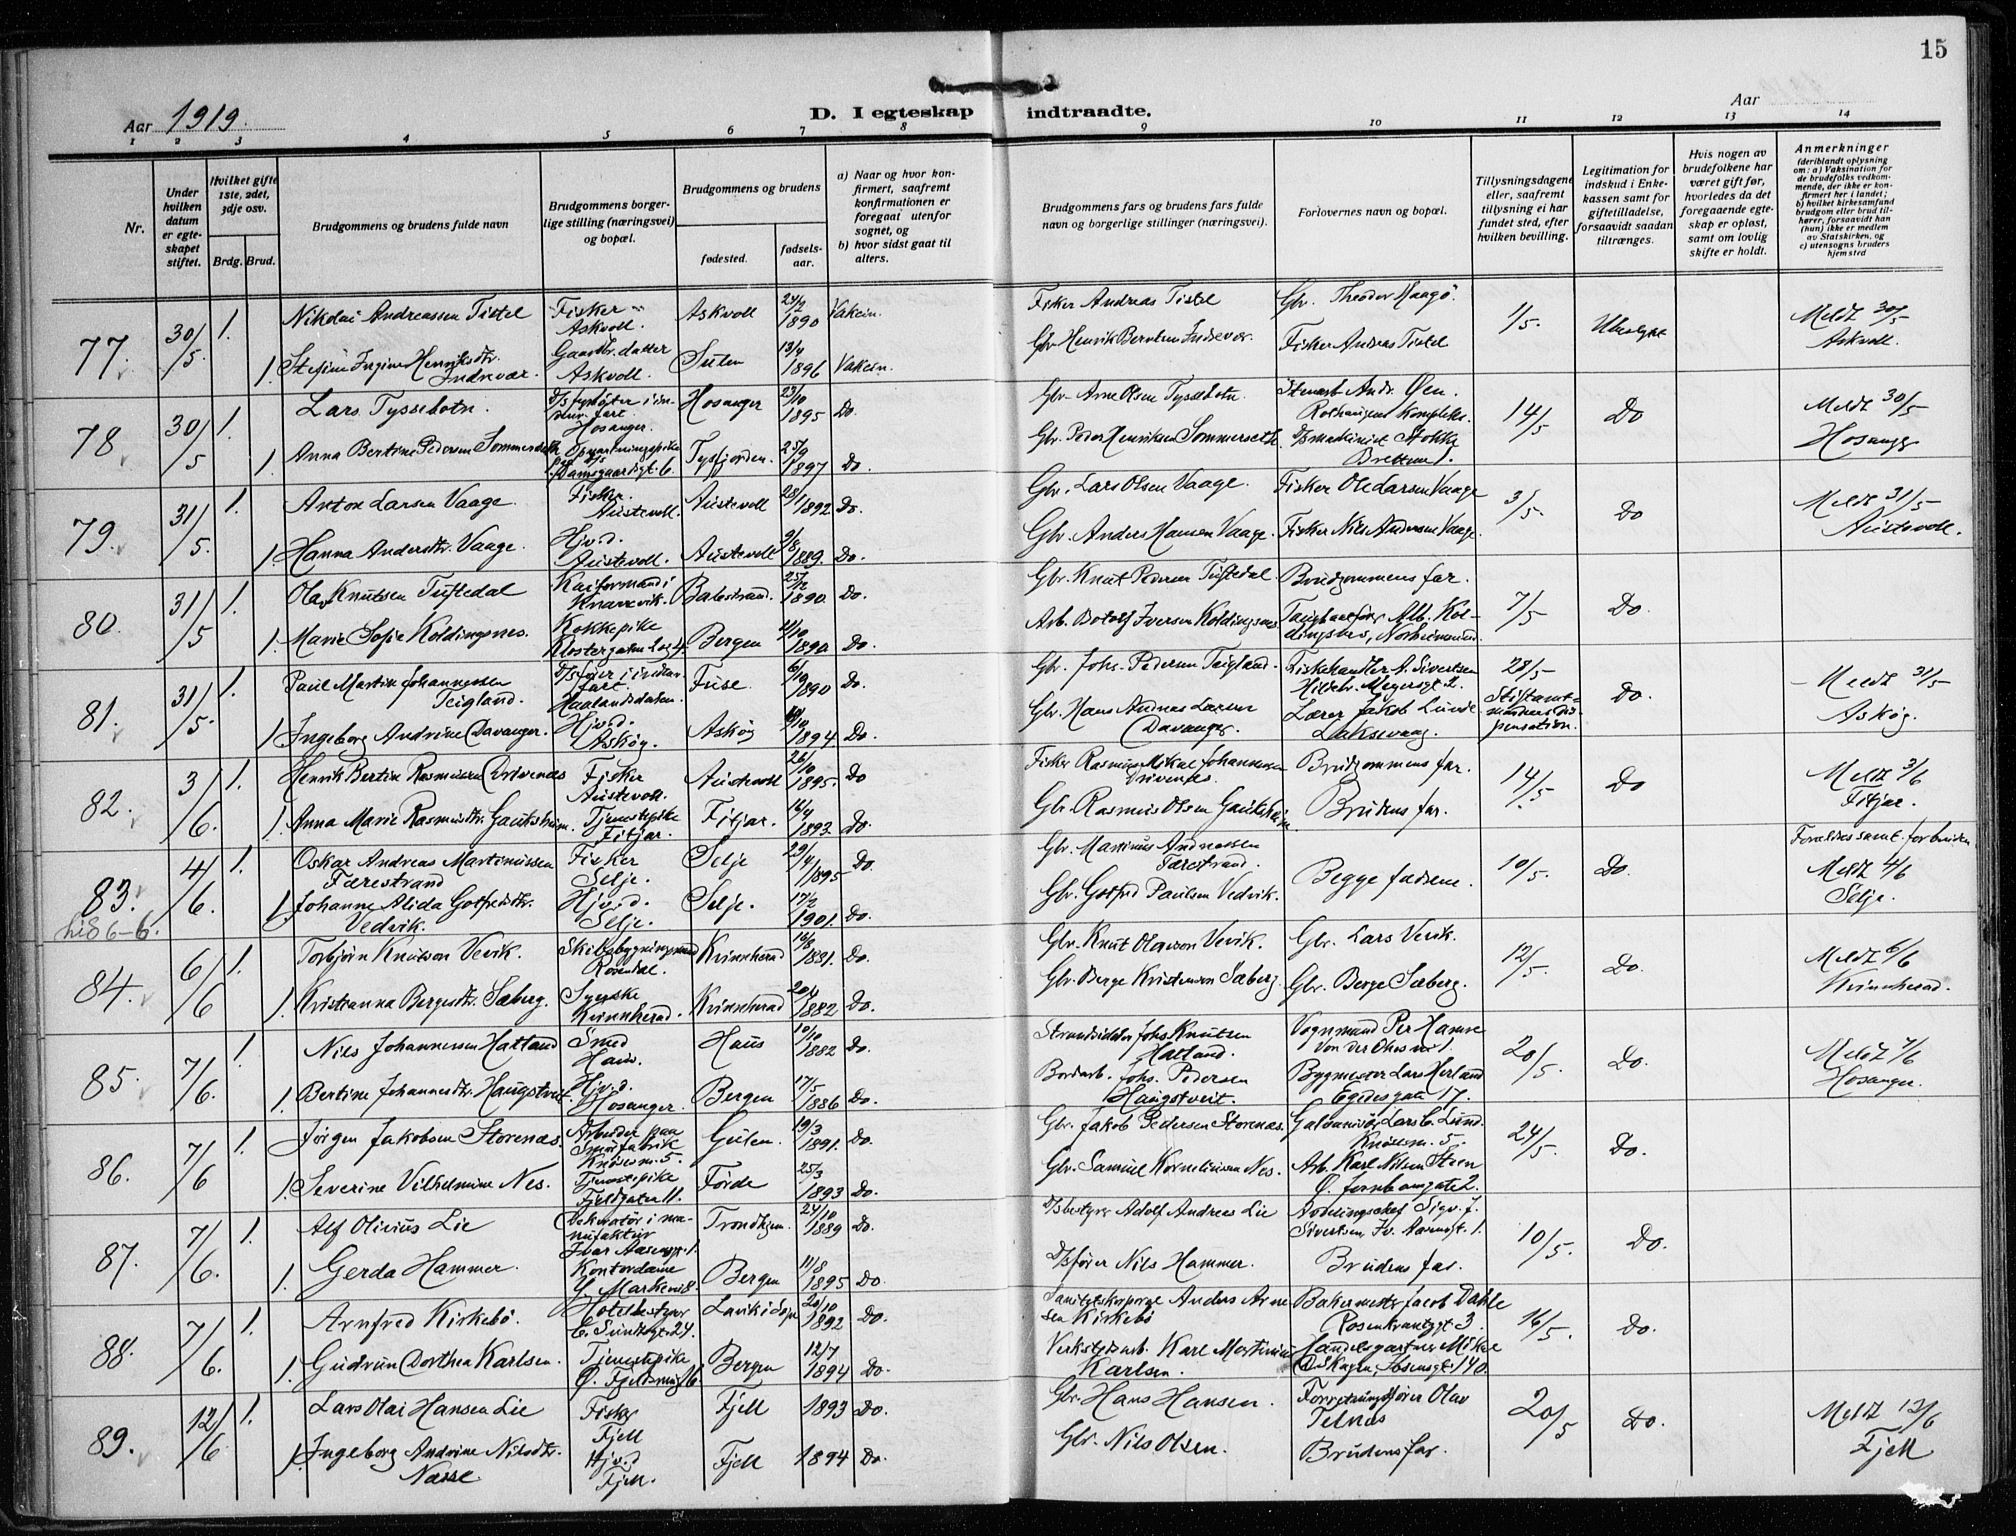 15
Aar 1919.
D. I egteskap indtraadte.
Aar
1 2 3 4 5 6 7 8 9 10 11 12 13 14
Nr.
Under hvilken datum er egteskapet stiftet.
Hvilket gifte 1ste, 2det, 3dje osv.
Brdg. Brud.
Brudgommens og brudens fulde navn
Brudgommens borgerlige stilling (næringsvei) og bopæl.
Brudgommens og brudens
fødested.
fødselsaar.
a) Naar og hvor konfirmert, saafremt konfirmationen er foregaat utenfor sognet, og
b) hvor sidst gaat til alters.
Brudgommens fars og brudens fars fulde navn og borgerlige stillinger (næringsvei).
Forlovernes navn og bopæl.
Tillysningsdagene eller, saafremt tillysning ei har fundet sted, efter hvilken bevilling.
Legitimation for indskud i Enkekassen samt for giftetilladelse, forsaavidt saadan tiltrænges.
Hvis nogen av brudefolkene har været gift før, hvorledes da det foregaaende egteskap er opløst, samt om lovlig skifte er holdt.
Anmerkninger
(deriblandt oplysning om: a) Vaksination for de brudefolks vedkommende, der ikke er konfirmert her i landet; b) hvilket kirkesamfund brudgom eller brud tilhører, forsaavidt han (hun) ikke er medlem av Statskirken, og c) utensogns bruders hjemsted
77. 30/5 1. Nikolai Andreassen Tistel Fisker Askvoll. Askvoll 24/2 1890 Vakcin. Fisker Andreas Tistel Gbr. Theodor 1/5. Meldt 30/5 Askvoll.
1. Henriksdtr. Indrevær. Gaardbr. datter Askvoll. 13/4 1896 Vakcin. Gbr Henrik Berntsen Indrevær. Fisker Andreas Tistel
78 30/5 1. Lars Tyssebotn. Hosanger. Hosanger 23/10 1895 Do. Gbr. Arne Olsen Tyssebotn. 14/5 Do Meldt 30/5 Hosanger
1. Anna Bertine Pedersen Sommerseth Opvartningspike Damsgaardsgt. 6. Tysfjorden. 25/9 1897 Do. Gbr. Peder Henriksen Sommerseth.
79. 31/5. 1. Anton Larsen Vaage. Fisker. Austevoll. Austevoll 28/1 1892 Do. Gbr. Lars Olsen Vaage. Fisker Ole Larsen Vaage 3/5. Do Meldt 31/5 Austevoll.
1. Hanna Andersdtr. Vaage. Hjv. d. Austevoll. Austevoll 9/8 1889. Do. Gbr. Anders Hansen Vaage. Fisker Nils Andersen Vaage.
80. 31/5 1. Olav Knutsen Tuftedal Kaiformand i Knarrevik. Balestrand. 25/12 1890. Do. Gbr. Knut Pedersen Tuftedal. Brudgommens far. 7/5 Do.
1. Marie Sofie Koldingsnes. Kokkepike Bergen 1890. Do. Arb. Botolf Iversen Koldingsnes
81. 31/5. 1. Paul Martin Johannessen Teigland. Haalandsdalen. Fuse. 1890 Do. Gbr. Johs. Pedersen Teigland. Fiskehandler A. Sivertsen 28/5 Stiftamtmandens dispensation. Do. Meldt 31/5 Askøy.
1. Ingeborg Andrine Davanger. Hjv. d. Askøy. Askøy 1894 Do. Gbr. Hans Andreas Larsen Davanger. Lærer Jakob Lunde Laksevaag.
82. 3/6. 1. Henrik Bertin Rasmussen Drivenes Fisker Austevoll. Austevoll 26/10 1895. Do Fisker Rasmus Mikal Johannessen Drivenes. Brudgommens far. 14/5. Do Meldt 3/6 Fitjar.
1. Anna Marie Rasmusdtr. Gauksheim. Tjenestepike Fitjar. Fitjar. 16/4 1893. Do. Gbr. Rasmus Olsen Gauksheim. Brudens far.
83. 4/6. 1. Oskar Andreas Martinussen Færestrand Fisker Selje. Selje 29/4 1895 Do. Gbr. Martinus Andreassen Færestrand. Begge fædrene. 10/5. Do. Meldt 4/6 Selje.
1 Johanne Alida Gotfredsdtr. Vedvik. Hjv. d. Selje. Selje. 17/2 1901. Do. Gbr. Gotfred Paulsen Vedvik.
84. 6/6 1. Torbjørn Knutson Vevik. Rosendal. Kvinnherad 16/8 1881. Do. Gbr. Knut Olavson Vevik. Gbr. Lars Vevik. 12/5. Do. Meldt 6/6 Kvinnherad.
1. Kristianna Bergesdtr. Sæberg. Syerske Kvinnherad. Kvinnherad 1882 Do. Gbr. Berge Kristensen Sæberg. Gbr. Berge Sæberg.
85. 7/6. 1. Nils Johannessen Hatland Smed Haus. Haus 10/10 1882 Do. Strandsidder Johs Knutsen Hatland. Vognmand Per Hamre 20/5. Do. Meldt 7/6 Hosanger.
1. Bertine Johannesdtr. Haugstveit. Hjv. d. Hosanger. Bergen 17/5 1886 Do. Bordarb. Johs. Pedersen Haugstveit. Bygmester Lars Herland Egedesgate 17.
86. 7/6 1. Jørgen Jakobsen Storenæs. Arbeider paa Knøsesm. 5. Gulen. 19/3 1891. Do. Gbr. Jakob Pedersen Storenæs. Lars C. Lund. Knøsesm. 5. 24/5. Do.
1. Severine Vilhelmine Nes. Tjenestepike Fjeldgaten 11. Førde 25/3 1893 Do. Gbr. Samuel Korneliussen Nes. Arb. Karl Nilsen Steen
87. 7/6. 1. Alf Olivius Lie Dekoratør i manufaktur Ivar Aasensgt. 1. Trondhjem. 24/10 1889 Do. Adolf Andreas Lie Avdelingschef Sigv. J. Sivertsen, Iv. Aasensgt. 1. 10/5. Do.
1. Gerda Hammer. Kontordame Bergen 11/8 1895 Do. D/sfører Nils Hammer. Brudens far.
88. 7/6. 1. Arnfred Kirkebø Hotelbestyrer C. Sundtsgt. 24. Lavik i Sogn 20/10 1892 Do. Anders Arnesen Kirkebø Bakermester Jacob Dahle Rosenkrantzgt 3. 16/5. Do.
1. Gudrun Dorthea Karlsen. Tjenestepike Bergen 12/7 1894 Do. Verkstedsarb. Karl Martinius Karlsen. Handelsgartner Mikal Ibsensgt. 140.
89. 12/6 1. Lars Olai Hansen Lie Fisker Fjell Fjell 1893 Do. Gbr. Hans Hansen. Forretningsfører Olav Telnæs 20/5 Do. Meldt 12/6 Fjell
1. Ingeborg Andrine Nilsdtr. Næsse. Hjv. d Fjell. Fjell 1894 Do. Gbr. Nils Olsen. Brudens far.